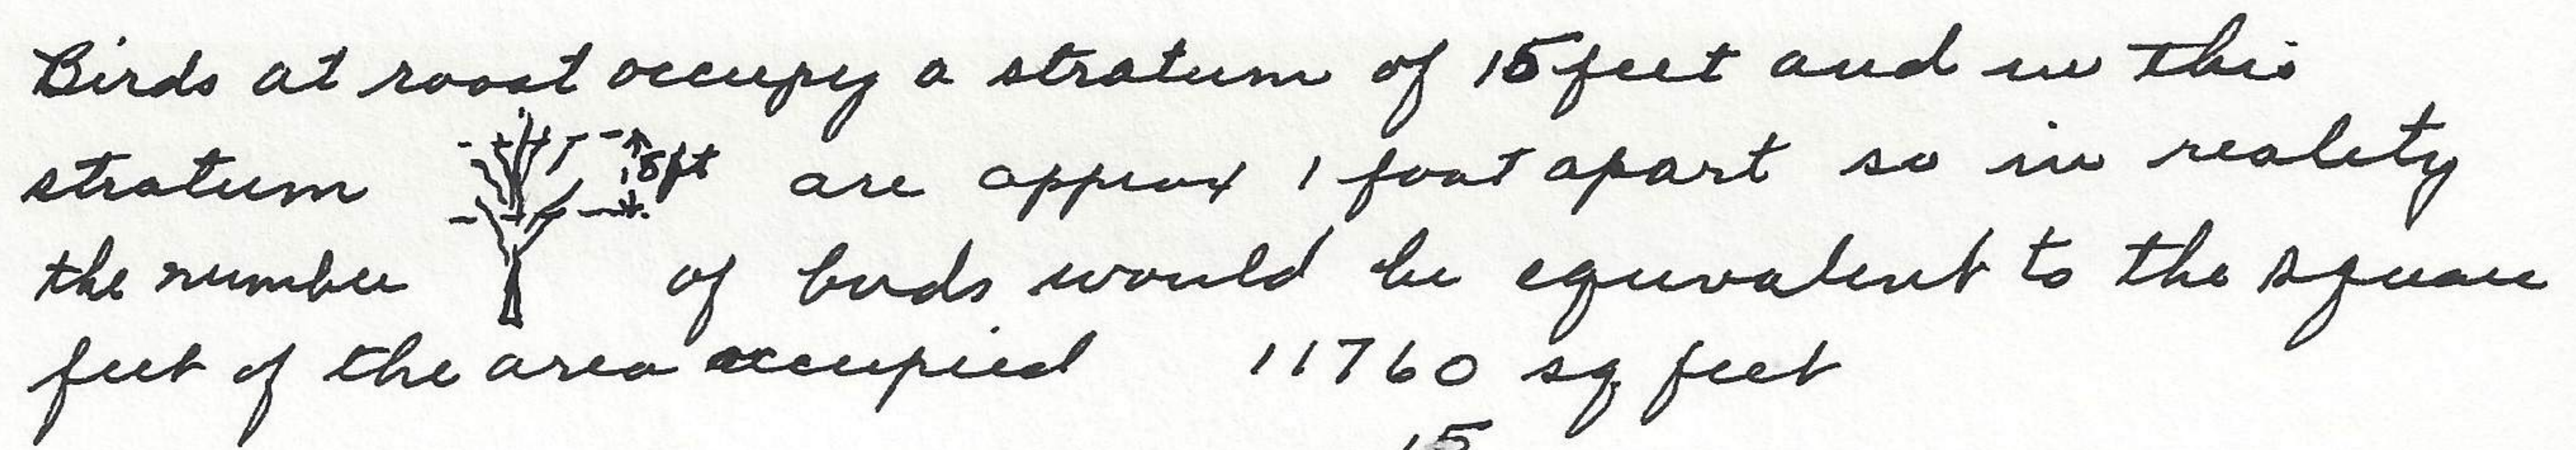 Birds at roost occupy a stratum of 15 feet and in this
stratum 15ft are approx 1 foot apart so in reality
the number of birds would be equivalent to the square
feet of the area occupied 11760 sq feet
15